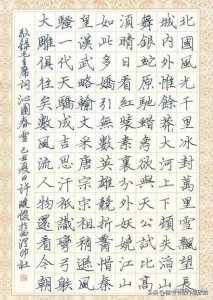 北國風光千里冰封萬里雪飄望長
城內外惟餘莽々大河上下頓失滔々山
舞銀蛇原馳蠟象欲與天公試比高
須晴日看紅裝素裹分外妖嬈江山
如此多嬌引無數英雄競折腰惜秦
皇漢武略輸文采唐宗宋祖稍遜風
騷一代天驕成吉思汗祇識彎弓射
大雕俱往矣數風流人物還看今朝
敬錄毛主席詞沁園春雪己丑夏日許曉俊於西泠印社